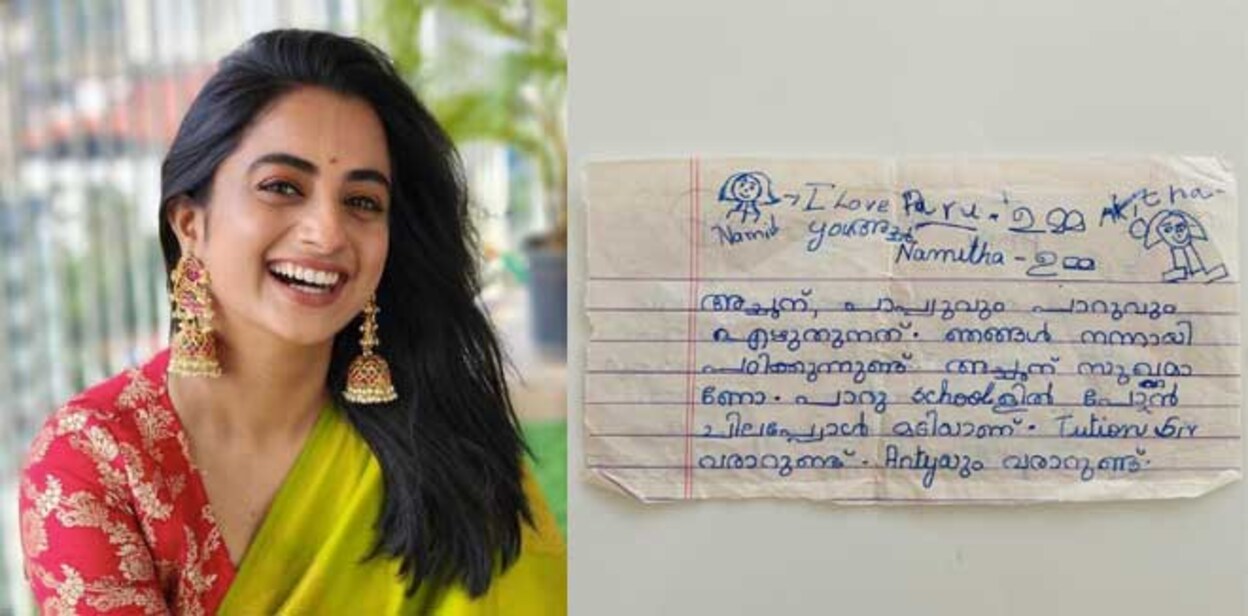 I Love Paru - ഉമ്മ Akitha-
Namit you അച്ഛൻ
Namitha - ഉമ്മ
അച്ഛന്, പാപ്പുവും പാറുവും
എഴുതുന്നത്. ഞങ്ങൾ നന്നായി
പഠിക്കുന്നുണ്ട് അച്ഛന് സുഖമാ
ണോ. പാറു schoolളിൽ പോവാൻ
ചിലപ്പോൾ മടിയാണ്. Tution Sir
വരാറുണ്ട്. Antyയും വരാറുണ്ട്.